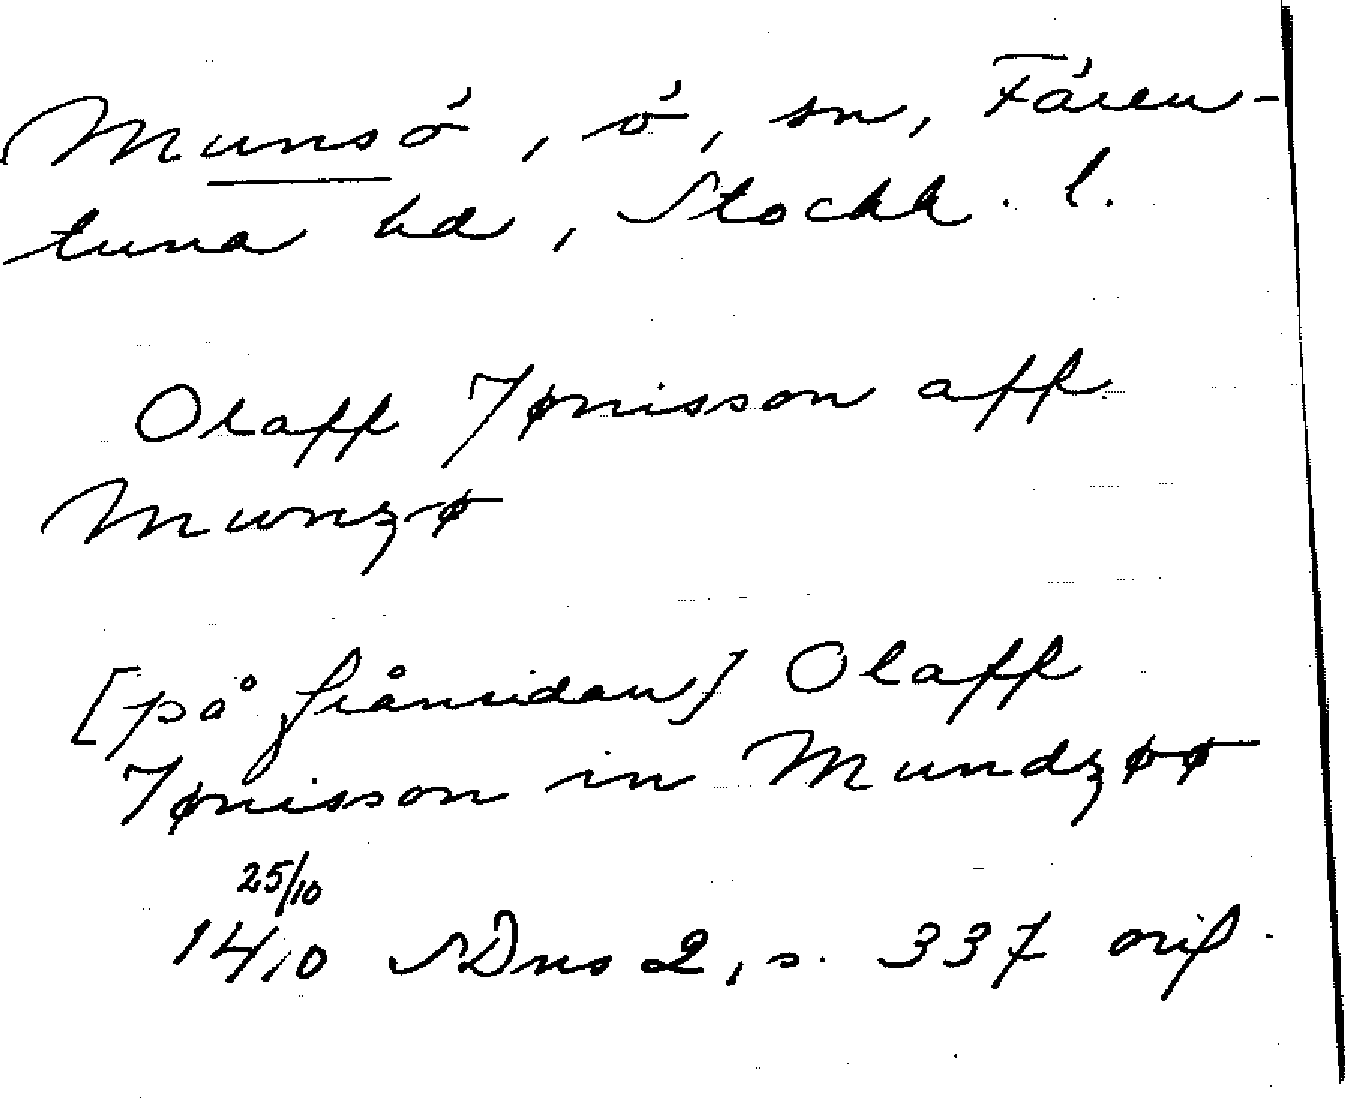 Munsö, ö, sn, Fären-
tuna hd, Stockh. l.
Olaff Jønisson aff
Munzø
[på frånsidan] Olaff
Jønisson in Mundzøø
25/10
1410 SDns 2, s. 337 orig